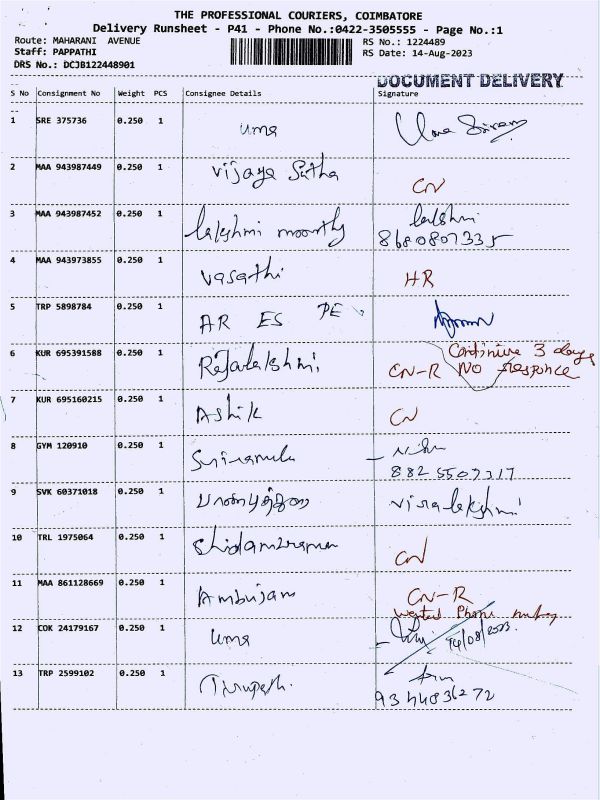 THE PROFESSIONAL COURIERS, COIMBATORE
Delivery Runsheet - P41 - Phone No.:0422-3505555 - Page No.:1
Route: MAHARANI AVENUE
RS No.: 1224489
Staff: PAPPATHI
RS Date: 14-Aug-2023
DRS No.: DCJB122448901
DOCUMENT DELIVERY
S No Consignment No Weight PCS Consignee Details Signature
1 SRE 375736 0.250 1 uma Uma Sriram
2 MAA 943987449 0.250 1 vijaya Sutha CN
3 MAA 943987452 0.250 1 lakshmi moorthy lakshmi
8680807335
4 MAA 943973855 0.250 1 vasathi HR
5 TRP 5898784 0.250 1 AR ES PE
6 KUR 695391588 0.250 1 Rajalakshmi CN-R Continive 3 days
NO Responce
7 KUR 695160215 0.250 1 Ashik CN
8 GYM 120910 0.250 1 Sriramulu
8825507317
9 SVK 60371018 0.250 1 vijralekshmi
10 TRL 1975064 0.250 1 Chidambraman CN
11 MAA 861128669 0.250 1 Ambujam CN-R
wanted Phone number
12 COK 24179167 0.250 1 uma 14/08/2023
13 TRP 2599102 0.250 1 Thirupath
9344836272